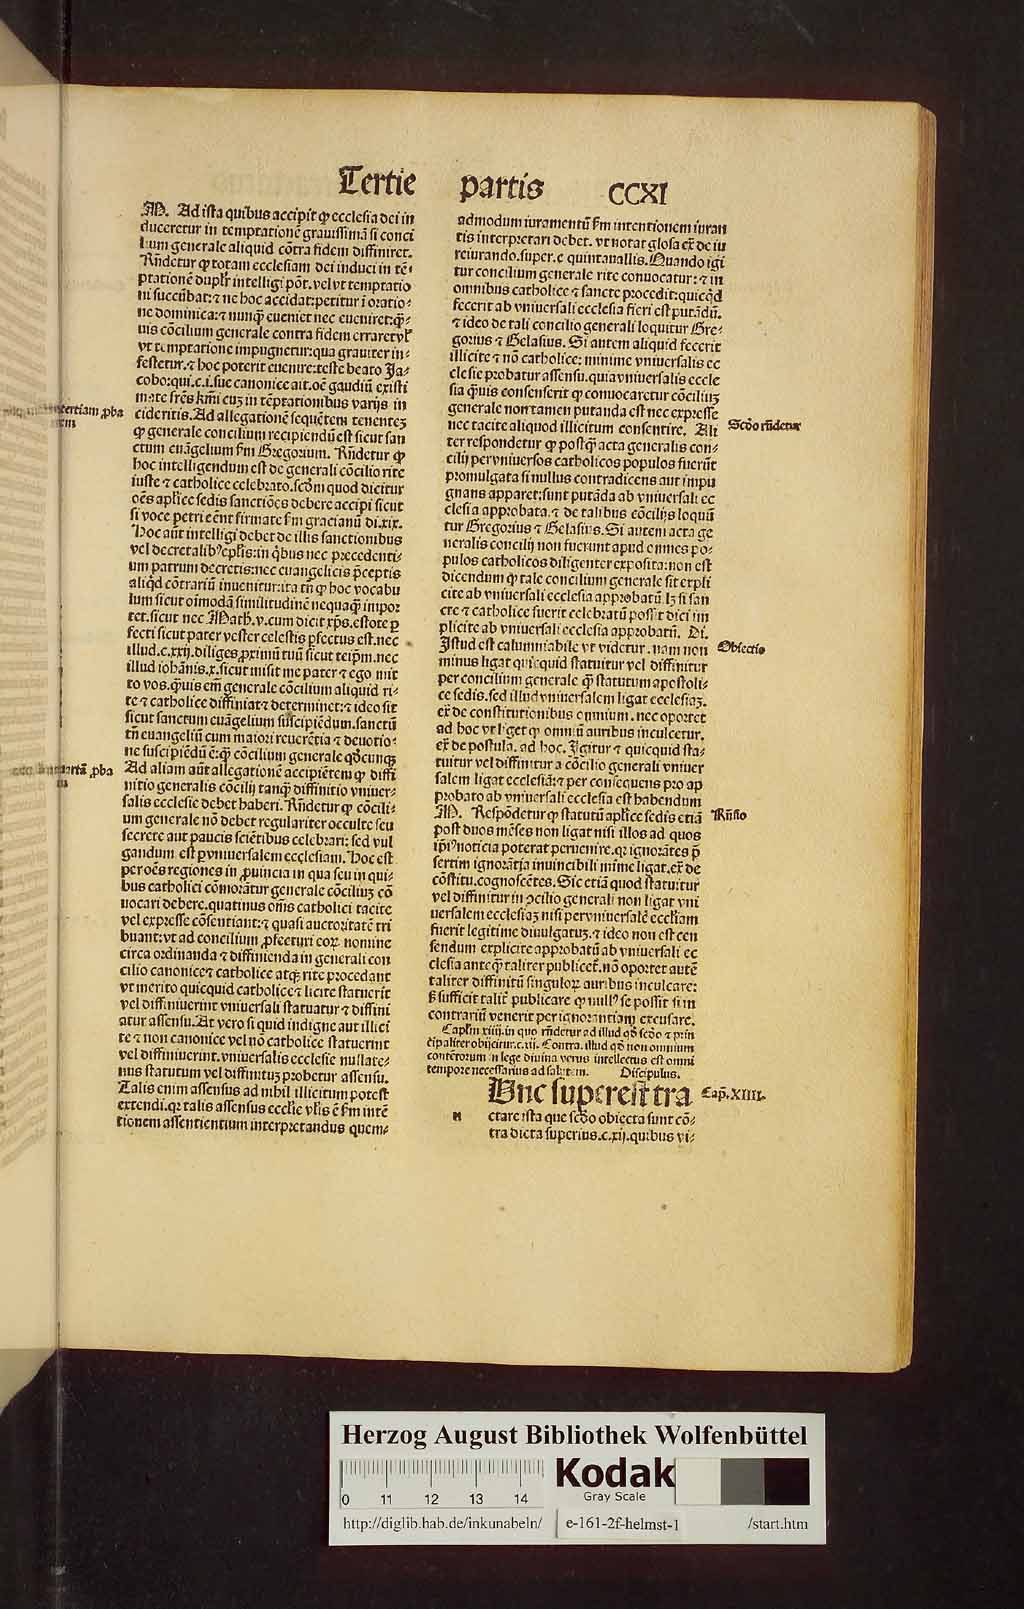 Tertie partis CCXI
M. Ad ista quibus accipit ꝙ ecclesia dei in
duceretur in temptationē grauissimā si conci
lium generale aliquid cōtra fidem diffiniret.
Rñdetur ꝙ totam ecclesiam dei induci in tē-
ptationē duplr̄ intelligi pōt. vel vt temptatio
ni succūbat: ⁊ ne hoc accidat: petitur ī oratio-
ne dominica: ⁊ nunqꝫ eueniet nec eueniret: qꝫ-
uis cōcilium generale contra fidem erraret vl̓
vt temptatione impugnetur: qua grauiter in-
festetur. ⁊ hoc poterit euenire: teste beato Ja-
cobo: qui. c. i. sue canonice ait. oē gaudiū existi
mate frēs km̄i cuꝫ in tēptationibus varijs in
cideritis. Ad allegationē sequētem tenenteꝫ
ꝙ generale concilium recipiendū est sicut san
ctum euāgelium ẜm Gregorium. Rñdetur ꝙ
hoc intelligendum est de generali cōcilio rite
iuste ⁊ catholice celebrato. scḋm quod dicitur
oēs apl̓ice sedis sanctiōes debere accipi sicut
si voce petri eēnt firmate ẜm gracianū di. xix.
Hoc aūt intelligi debet de illis sanctionibus
vel decretalibꝰ epl̓is: in qͥbus nec precedenti-
um patrum decretis: nec euangelicis p̄ceptis
aliqͥd cōtrariū inuenitur: ita tñ ꝙ hoc vocabu
lum sicut oīmodā similitudinē nequaqꝫ impor
tet. sicut nec Math̓. v. cum dicit xp̄s. estote ꝑ
fecti sicut pater vester celestis ꝑfectus est. nec
illud. c. xxij. diliges ꝓximū tuū sicut teip̄m. nec
illud iohānis. x. sicut misit me pater ⁊ ego mit
to vos. qꝫuis em̄ generale cōcilium aliquid ri-
te ⁊ catholice diffiniat ⁊ determinet: ⁊ ideo sit
sicut sanctum euāgelium suscipiēdum. sanctū
tñ euangeliū cum maiori reuerētia ⁊ deuotio-
ne suscipiēdū ē: qꝫ cōcilium generale qḋcunqꝫ
Ad aliam aūt allegationē accipiētem ꝙ diffi
nitio generalis cōcilij tanqꝫ diffinitio vniuer-
salis ecclesie debet haberi. Rñdetur ꝙ cōcili-
um generale nō debet regulariter occulte seu
secrete aut paucis sciētibus celebrari: sed vul
gandum est ꝑ vniuersalem ecclesiam. Hoc est
per oēs regiones in ꝓuincia in qua seu in qui-
bus catholici cōmorātur generale cōciliuꝫ cō
uocari debere. quatinus om̄s catholici tacite
vel expresse cōsentiant: ⁊ quasi auctoritatē tri
buant: vt ad concilium ꝓfecturi eoꝝ nomine
circa ordinanda ⁊ diffinienda in generali con
cilio canonice ⁊ catholice atqꝫ rite procedant
vt merito quicquid catholice ⁊ licite statuerit
vel diffiniuerint vniuersali statuatur ⁊ diffini
atur assensu. At vero si quid indigne aut illici
te ⁊ non canonice vel nō catholice statuerint
vel diffiniuerint. vniuersalis ecclesie nullate-
nus statutum vel diffinituꝫ probetur assensu.
Talis enim assensus ad nihil illicitum potest
extendi. qꝛ talis assensus eccl̓ie vl̓is ē ẜm intē
tionem assentientium interpretandus quem-
admodum iuramentū ẜm intentionem iuran
tis interpretari debet. vt notat glosa ex̄ de iu
reiurando. super. c quintauallis. Quando igi
tur concilium generale rite conuocatur: ⁊ in
omnibus catholice ⁊ sancte procedit: quicqͥd
fecerit ab vniuersali ecclesia fieri est putādū.
⁊ ideo de tali concilio generali loquitur Gre-
gorius ⁊ Gelasius. Si autem aliquid fecerit
illicite ⁊ nō catholice: minime vniuersalis ec
clesie probatur assensu. quia vniuersalis eccle
sia qꝫuis consenserit ꝙ conuocaretur cōciliuꝫ
generale non tamen putanda est nec expresse
nec tacite aliquod illicitum consentire. Ali
ter respondetur ꝙ postqꝫ acta generalis con-
cilij per vniuersos catholicos populos fuerūt
promulgata si nullus contradicens aut impu
gnans apparet: sunt putāda ab vniuersali ec
clesia approbata. ⁊ de talibus cōcilijs loquū
tur Gregorius ⁊ Gelasius. Si autem acta ge
neralis concilij non fuerunt apud omnes po-
pulos catholicos diligenter exposita: non est
dicendum ꝙ tale concilium generale sit expli
cite ab vniuersali ecclesia approbatū. lꝫ si san
cte ⁊ catholice fuerit celebratū possit dici im
plicite ab vniuersali ecclesia approbatū. Di.
Istud est calumniabile vt videtur. nam non
minus ligat quicquid statuitur vel diffinitur
per concilium generale qꝫ statutum apostoli-
ce sedis. sed illud vniuersalem ligat ecclesiaꝫ.
ex̄ de constitutionibus omnium. nec oportet
ad hoc vt liget ꝙ omniū auribus inculcetur.
ex̄ de postula. ad hoc. Igitur ⁊ quicquid sta-
tuitur vel diffinitur a cōcilio generali vniuer
salem ligat ecclesiā: ⁊ per consequens pro ap
probato ab vniuersali ecclesia est habendum
M. Respōdetur ꝙ statutū apl̓ice sedis etiā
post duos mēses non ligat nisi illos ad quos
ip̄iꝰ noticia poterat peruenire. qꝛ ignorātes p̄
sertim ignorātia inuincibili mīme ligat. ex̄ de
cōstitu. cognoscētes. Sic etiā quod statuitur
vel diffinitur in ꝯcilio generali non ligat vni
uersalem ecclesiaꝫ nisi per vniuersalē eccl̓iam
fuerit legitime diuulgatuꝫ. ⁊ ideo non est cen
sendum explicite approbatū ab vniuersali ec
clesia anteqꝫ taliter publicet̄. nō oportet autē
taliter diffinitū singuloꝝ auribus inculcare:
ẜ sufficit talit̓ publicare ꝙ nullꝰ se possit si in
contrariū venerit per ignorantiam excusare.
Caplm̄ xiiij. in quo rñdetur ad illud qḋ scḋo ⁊ prin
cipaliter obijcitur. c. xij. Contra. illud qḋ non omnium
contētorum in lege diuina verus intellectus est omni
tempore necessarius ad salutem. Discipulus.
Unc superest tra
n ctare ista que scḋo obiecta sunt cō-
tra dicta superius. c. xij. quibus vi-
tertiam ꝓba
quartā ꝓba
Scḋo rñdetur
Obiectio
Rñsio
Cap. XIIII.
Herzog August Bibliothek Wolfenbüttel
0 11 12 13 14
Kodak
Gray Scale
http://diglib.hab.de/inkunabeln/ e-161-2f-helmst-1 /start.htm